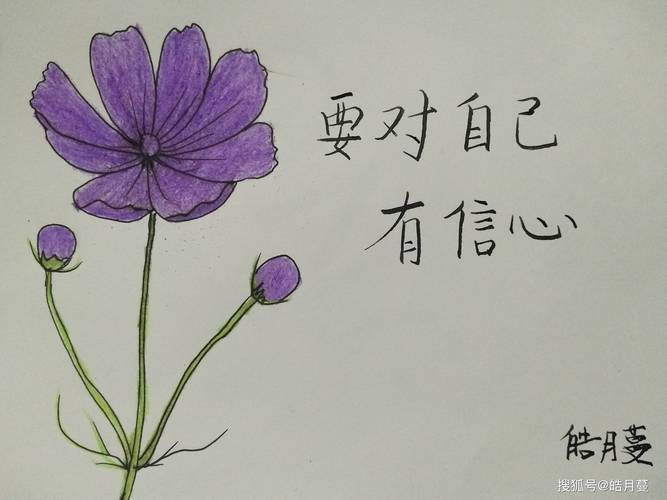 要对自己
有信心
皓月蔓
搜狐号@皓月蔓